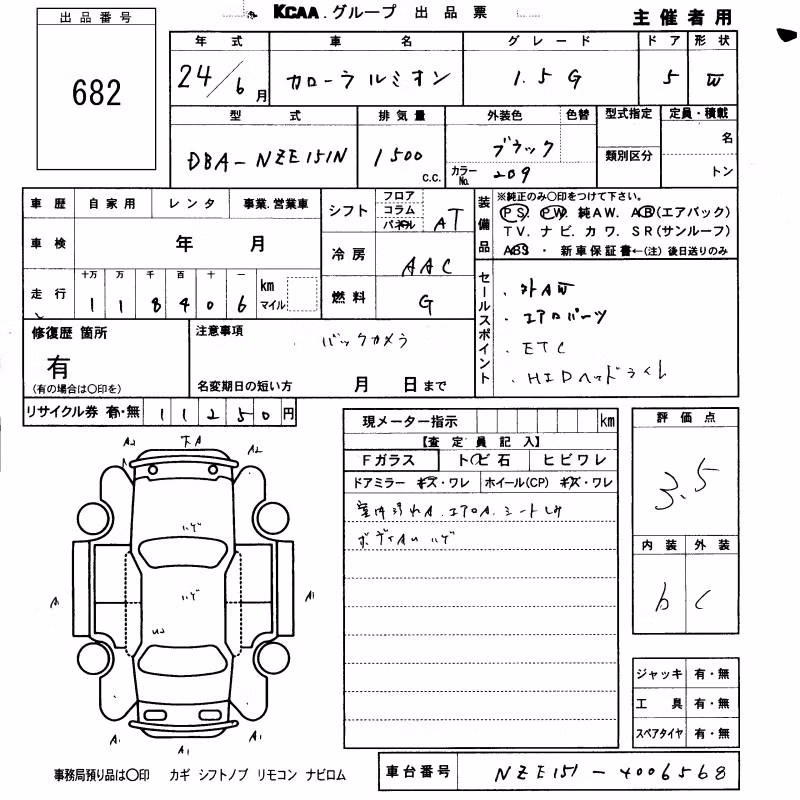 KCAA.グループ 出品票
主催者用
出品番号
682
年式 車名 グレード ドア 形状
24/6月 カローラルミオン 1.5G 5 W
型式 排気量 外装色 色替 型式指定 定員・積載
DBA-NZE151N 1500 c.c. ブラック 類別区分 名
カラーNo. 209 トン
車歴 自家用 レンタ 事業.営業車
車検 年 月
走行 十万 万 千 百 十 一 km マイル
118406
シフト フロア コラム パネル AT
冷房 AAC
燃料 G
装備品
※純正のみ○印をつけて下さい。
PS. PW. 純AW. AB(エアバック)
TV. ナビ. カワ. SR(サンルーフ)
ABS ・ 新車保証書←(注) 後日送りのみ
セールスポイント
・外AW
・エアロパーツ
・ETC
・HIDヘッドライト
修復歴 箇所
有
(有の場合は○印を)
注意事項
バックカメラ
名変期日の短い方 月 日まで
リサイクル券 有・無 11250円
現メーター指示 km
【査定員記入】
Fガラス トビ石 ヒビワレ
ドアミラー キズ・ワレ ホイール(CP) キズ・ワレ
室内汚れA.エアロA.シートしみ
ボディAUハゲ
評価点
3.5
内装 外装
b C
ジャッキ 有・無
工具 有・無
スペアタイヤ 有・無
A2 下A A2
ハゲ
ハゲ
A1 A1
U2
A1 A1 A1
事務局預り品は○印 カギ シフトノブ リモコン ナビロム
車台番号 NZE151-4006568